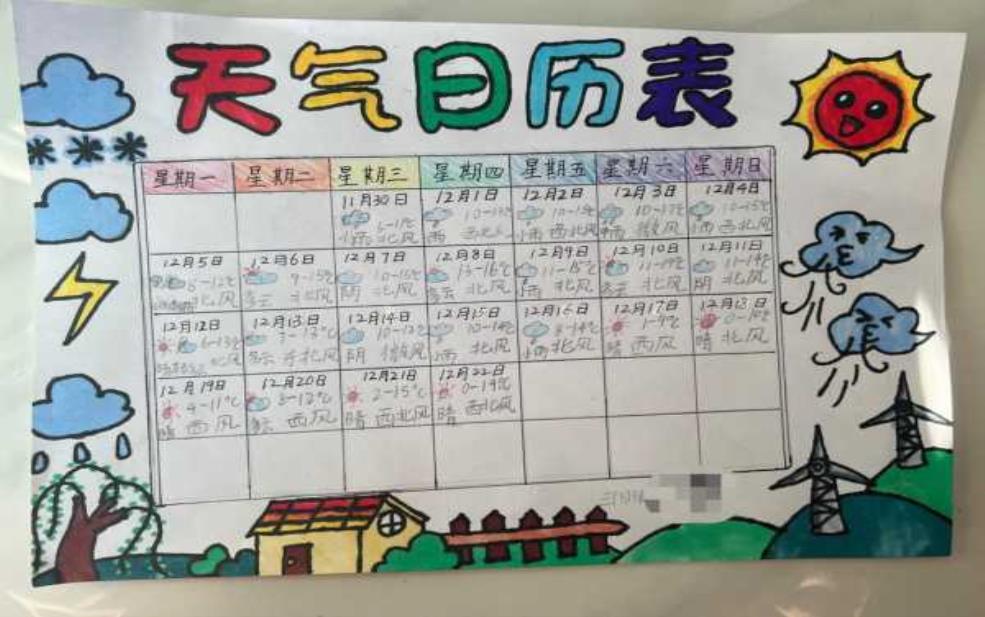 天气日历表
星期一 星期二 星期三 星期四 星期五 星期六 星期日
11月30日 12月1日 12月2日 12月3日 12月4日
北风 雨 小雨 西北风 微风 小雨 西北风
12月5日 12月6日 12月7日 12月8日 12月9日 12月10日 12月11日
8-12℃ 9-15℃ 10-15℃ 13-16℃ 11-15℃ 11-19℃ 11-14℃
北风 多云 北风 阴 北风 多云 北风 小雨 北风 多云 北风 阴 北风
12月12日 12月13日 12月14日 12月15日 12月16日 12月17日 12月18日
6-13℃ 7-13℃ 10-12℃ 10-14℃ 8-14℃ 1-9℃
北风 多云 北风 阴 微风 小雨 北风 小雨 北风 晴 西风 晴 北风
12月19日 12月20日 12月21日 12月22日
4-11℃ 3-12℃ 2-15℃ 0-14℃
晴 西风 多云 西风 晴 西北风 晴 西北风